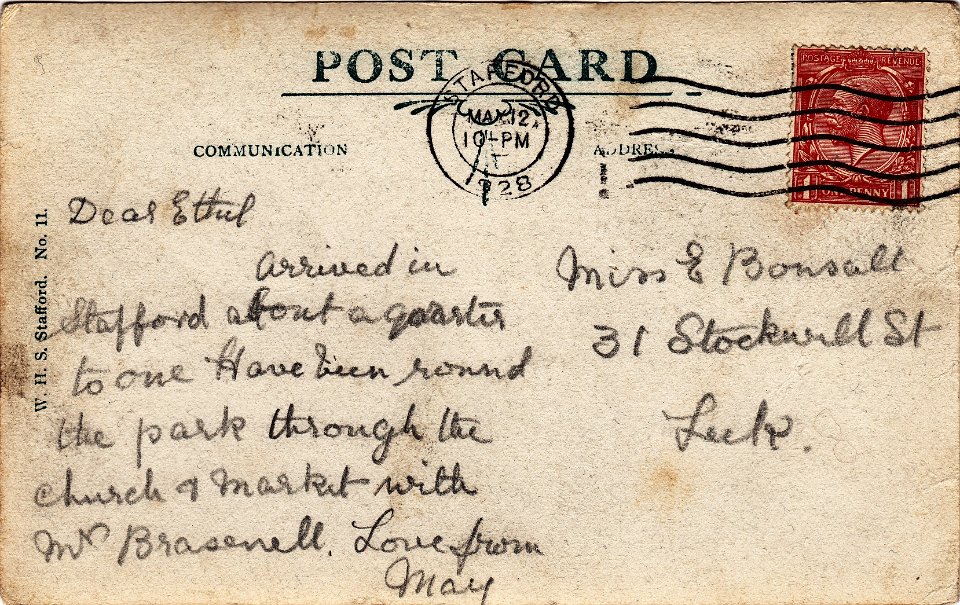 POST CARD
STAFFORD
MAY 12
10 - PM
1928
POSTAGE REVENUE
1 ONE PENNY 1
COMMUNICATION
ADDRESS
W. H. S. Stafford. No. 11.
Dear Ethel
arrived in
Stafford about a quarter
to one Have been round
the park through the
church & market with
Mrs Brasenell. Love from
May
Miss E Bonsall
31 Stockwell St
Leek.